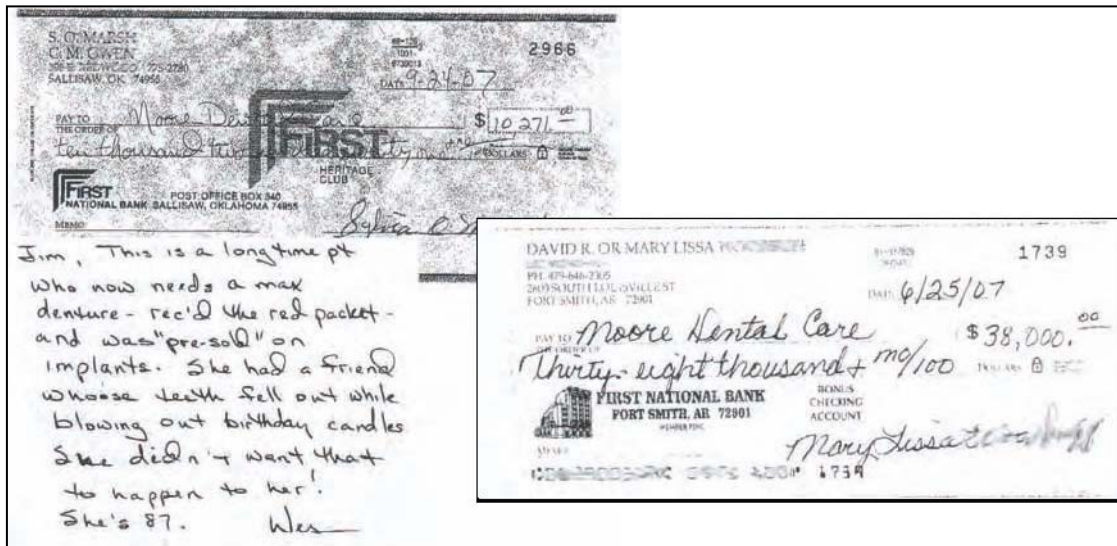 S. O. MARSH
C. M. OWEN
775-2780
SALLISAW, OK 74955
2966
DATE 9-24-07
PAY TO THE ORDER OF Moore
$ 10,271.00
ten thousand
DOLLARS
FIRST
HERITAGE CLUB
FIRST
NATIONAL BANK
POST OFFICE BOX 540
SALLISAW, OKLAHOMA 74955
MEMO
Sylvia O.
Jim, This is a longtime pt
who now needs a max
denture - rec'd the red packet -
and was "pre-sold" on
implants. She had a friend
whoose teeth fell out while
blowing out birthday candles
She didn't want that
to happen to her!
She's 87. Wes
DAVID R. OR MARY LISSA
PH. 479-646-2305
FORT SMITH, AR 72901
1739
DATE 6/25/07
PAY TO THE ORDER OF Moore Dental Care
$ 38,000.00
Thirty-eight thousand + no/100 DOLLARS
FIRST NATIONAL BANK
FORT SMITH, AR 72901
MEMBER FDIC
BONUS
CHECKING
ACCOUNT
Mary Lissa
1739